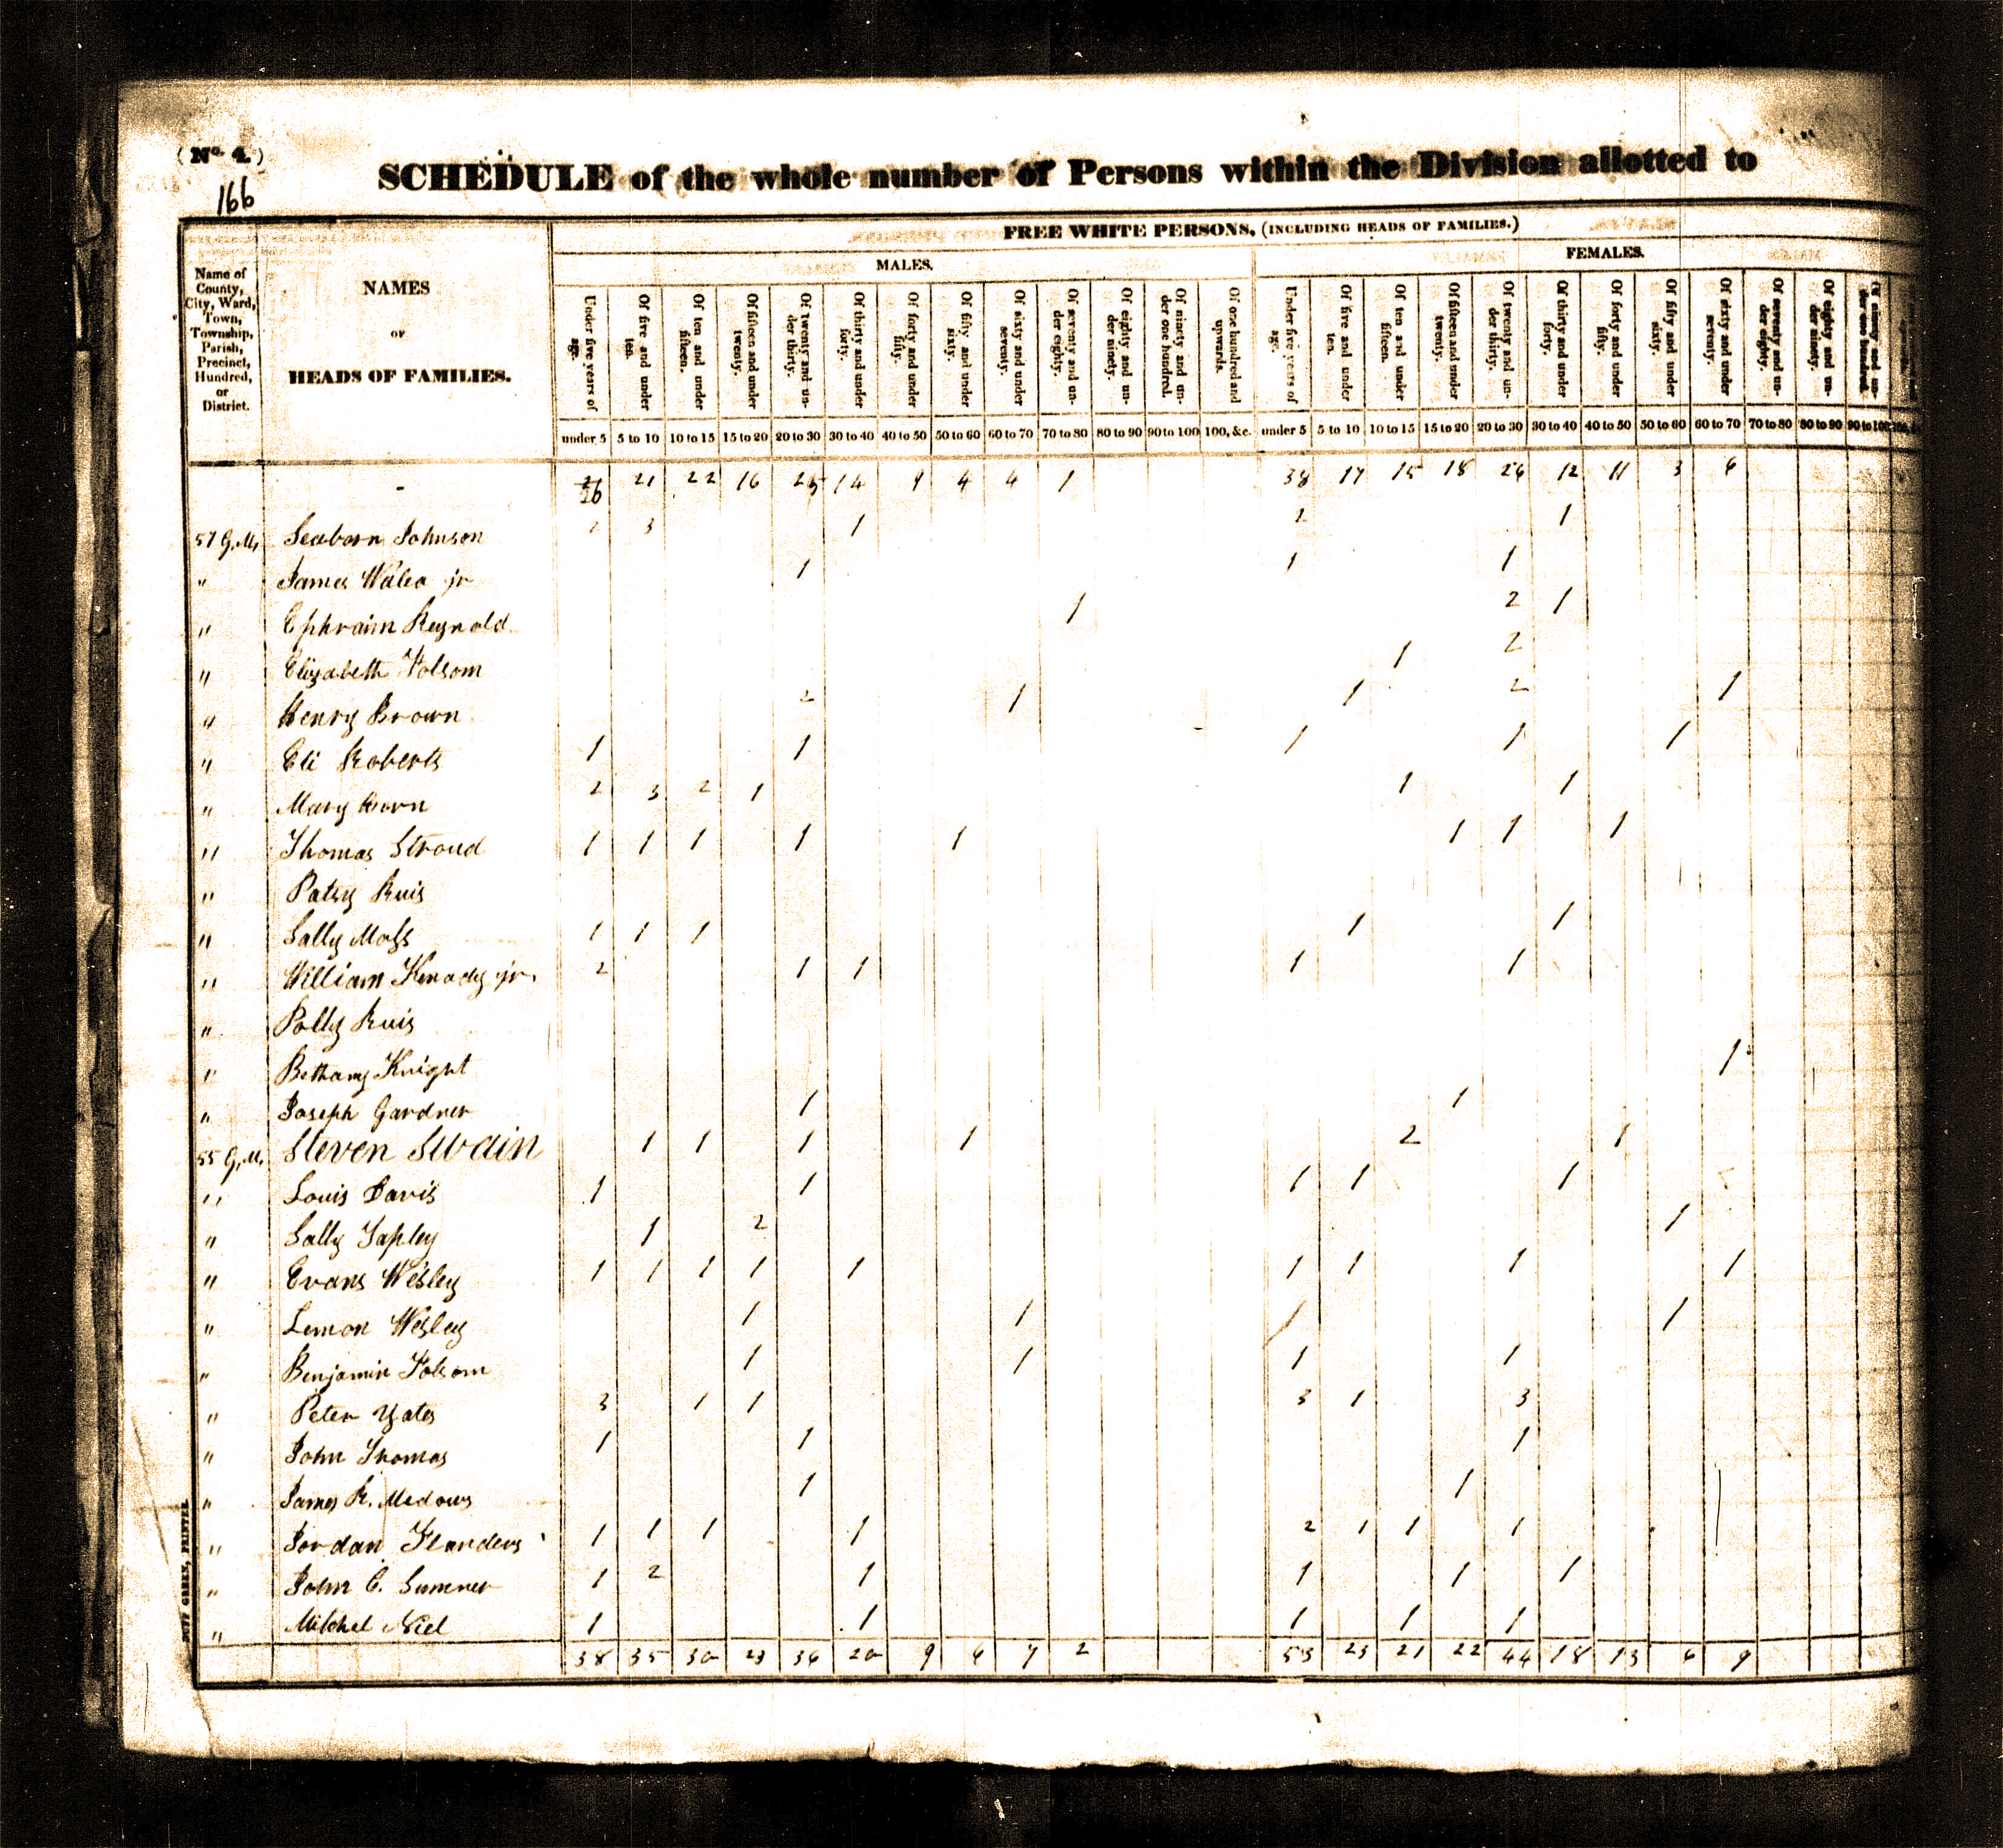 (No. 4.)
SCHEDULE of the whole number of Persons within the Division allotted to
166
FREE WHITE PERSONS, (INCLUDING HEADS OF FAMILIES.)
MALES.
FEMALES.
Name of County, City, Ward, Town, Township, Parish, Precinct, Hundred, or District.
NAMES
OF
HEADS OF FAMILIES.
Under five years of age. Of five and under ten. Of ten and under fifteen. Of fifteen and under twenty. Of twenty and under thirty. Of thirty and under forty. Of forty and under fifty. Of fifty and under sixty. Of sixty and under seventy. Of seventy and under eighty. Of eighty and under ninety. Of ninety and under one hundred. Of one hundred and upwards. Under five years of age. Of five and under ten. Of ten and under fifteen. Of fifteen and under twenty. Of twenty and under thirty. Of thirty and under forty. Of forty and under fifty. Of fifty and under sixty. Of sixty and under seventy. Of seventy and under eighty. Of eighty and under ninety. Of ninety and under one hundred.
under 5 5 to 10 10 to 15 15 to 20 20 to 30 30 to 40 40 to 50 50 to 60 60 to 70 70 to 80 80 to 90 90 to 100 100, &c. under 5 5 to 10 10 to 15 15 to 20 20 to 30 30 to 40 40 to 50 50 to 60 60 to 70 70 to 80 80 to 90 90 to 100
26 21 22 16 25 14 9 4 4 1 38 17 15 18 26 12 11 3 6
57 G.M. Seaborn Johnson 2 3 1 2 1
" James Wales jr 1 1 1
" Ephraim Reynold 1 2 1
" Elizabeth Folsom 1 2
" Henry Brown 2 1 1 2 1
" Eli Roberts 1 1 1 1 1
" Mary 2 3 2 1 1 1
" Thomas Stroud 1 1 1 1 1 1 1 1
" Patsy Ruis
" Sally Moss 1 1 1 1 1
" William Kenady jr. 2 1 1 1 1
" Polly Ruis
" Bethany Knight 1
" Joseph Gardner 1 1
55 G.M. Steven Swain 1 1 1 1 2 1
" Louis Davis 1 1 1 1 1
" Sally Tapley 1 2 1
" Evans Wesley 1 1 1 1 1 1 1 1 1
" Lemon Wesley 1 1 1 1
" Benjamin Folsom 1 1 1 1
" Peter Yates 3 1 1 3 1 3
" John Thomas 1 1 1
" James R. Medows 1 1
" Jordan Flanders 1 1 1 1 2 1 1 1
" John C. Sumner 1 2 1 1 1 1
" Mitchel Niel 1 1 1 1 1
38 35 30 23 36 20 9 6 7 2 53 23 21 22 44 18 13 6 9
DUFF GREEN, PRINTER.